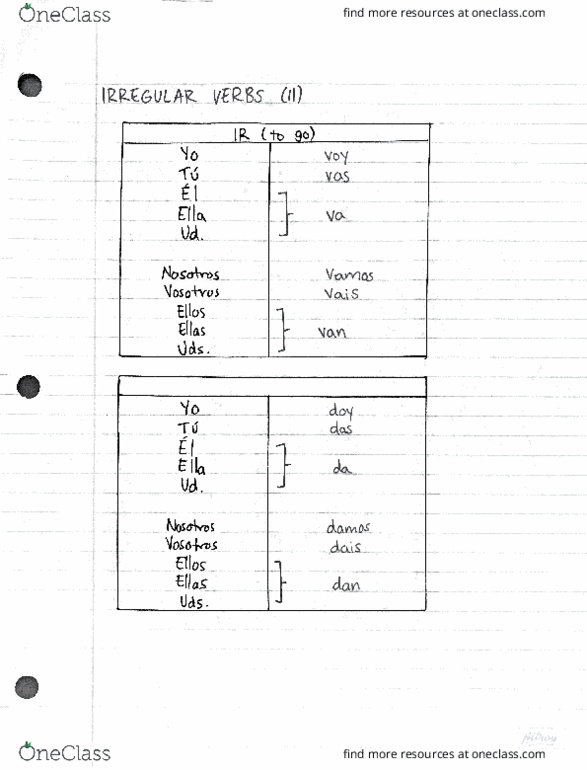 OneClass
find more resources at oneclass.com
IRREGULAR VERBS (II)
IR (to go)
Yo voy
Tú vas
Él
Ella va
Ud.
Nosotros vamos
Vosotros vais
Ellos
Ellas van
Uds.
Yo doy
Tú das
Él
Ella da
Ud.
Nosotros damos
Vosotros dais
Ellos
Ellas dan
Uds.
OneClass
find more resources at oneclass.com